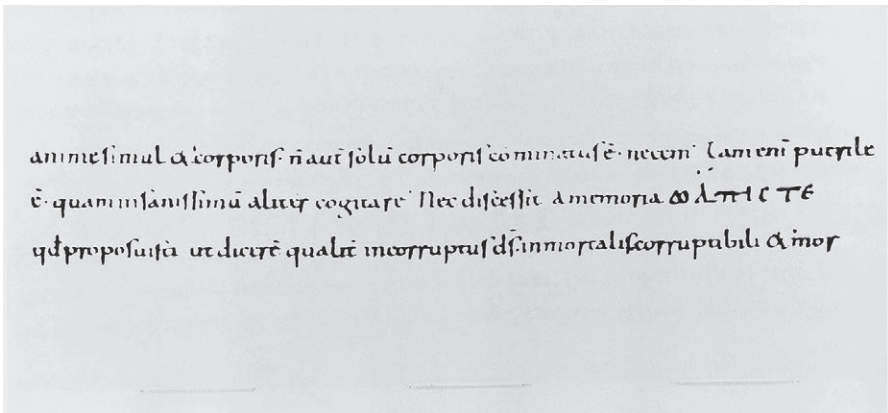 anime simul & corporis· n̄ aut̄ solū corporis cominatus ē· necem· Tam enī puerile
ē· quam insanissimū aliter cogitare· Nec discessit a memoria ω ΛΠΙCΤΕ
qđ proposuisti ut dicerē qualit̄ incorruptus d̄s inmortalis corruptibili & mor